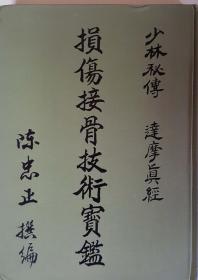 少林秘傳 達摩眞經
損傷接骨技術寶鑑
陈忠正 撰編